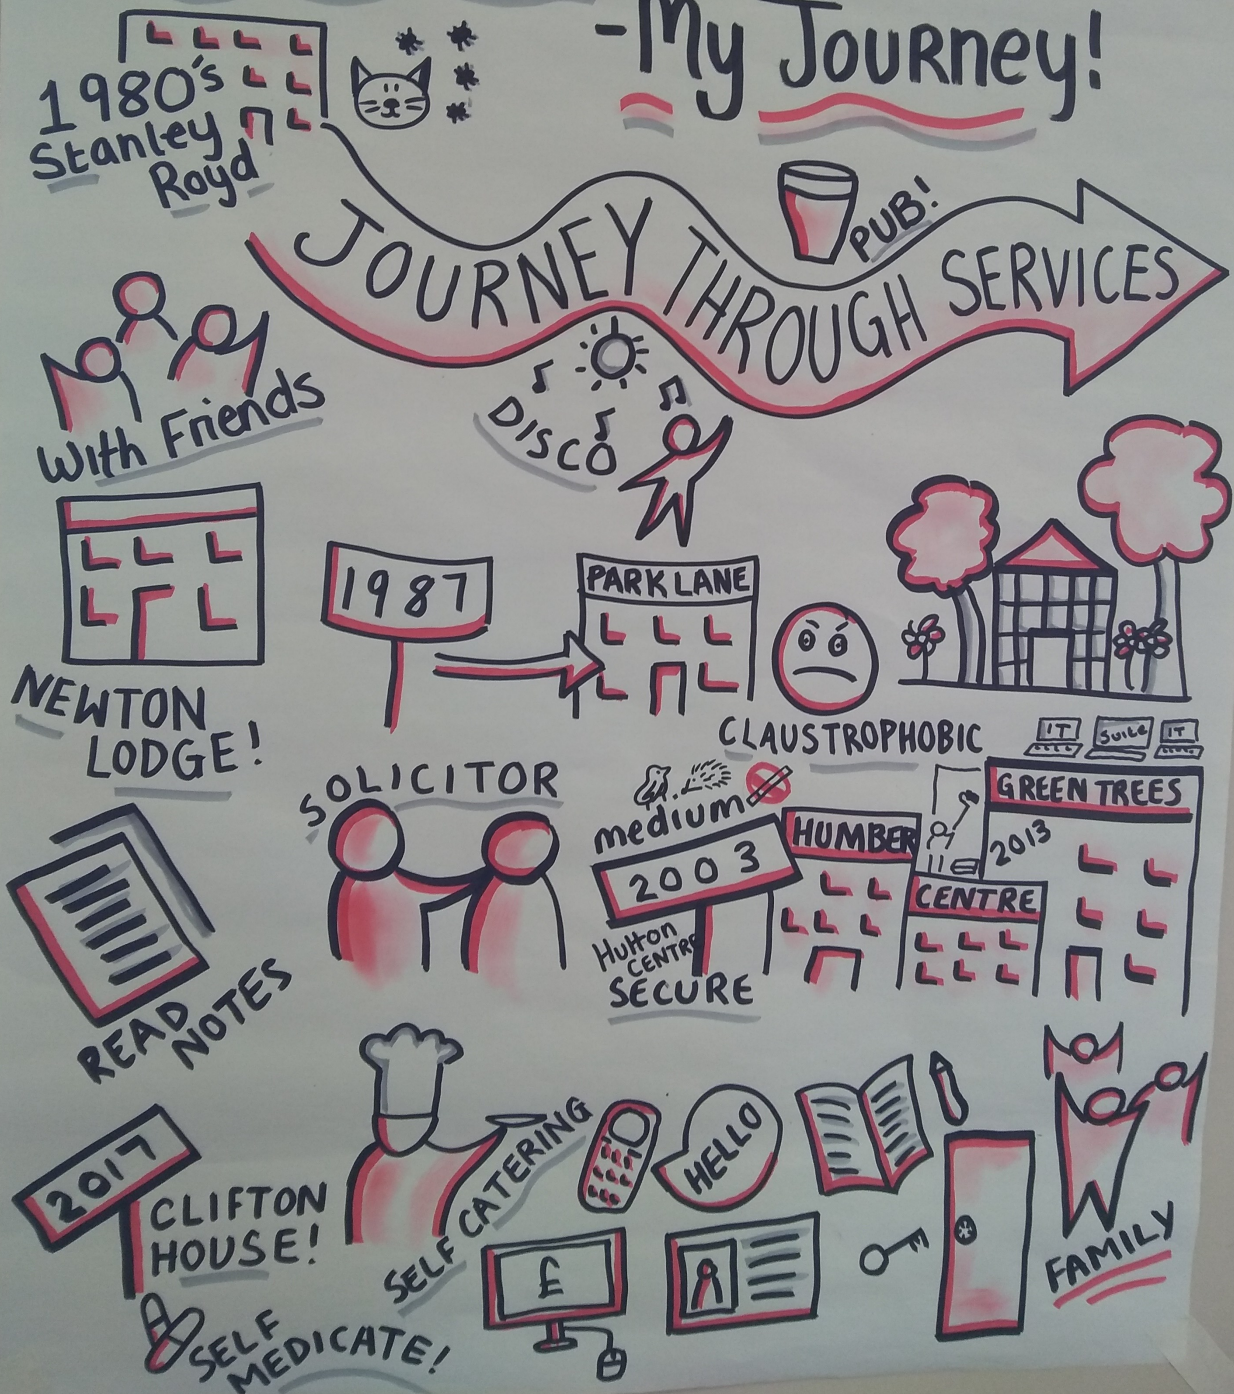 -My Journey!
1980's
Stanley
Royd
JOURNEY THROUGH SERVICES
PUB!
With Friends
DISCO
NEWTON
LODGE!
1987
PARK LANE
CLAUSTROPHOBIC
IT
Suite
IT
SOLICITOR
medium
2003
Hutton
CENTRE
SECURE
HUMBER
CENTRE
GREEN TREES
2013
READ
NOTES
2017
CLIFTON
HOUSE!
SELF CATERING
HELLO
£
FAMILY
SELF
MEDICATE!